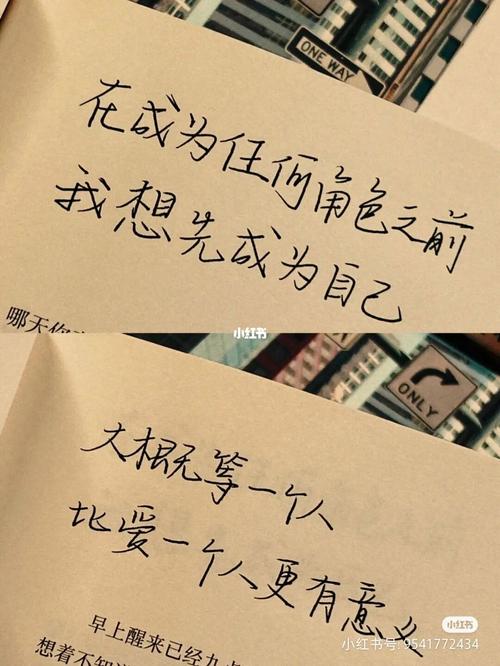 ONE WAY
在成为任何角色之前
我想先成为自己
哪天你
小红书
ONLY
大概等一个人
比爱一个人更有意义
早上醒来已经九点
想着不知
小红书
小红书号:9541772434